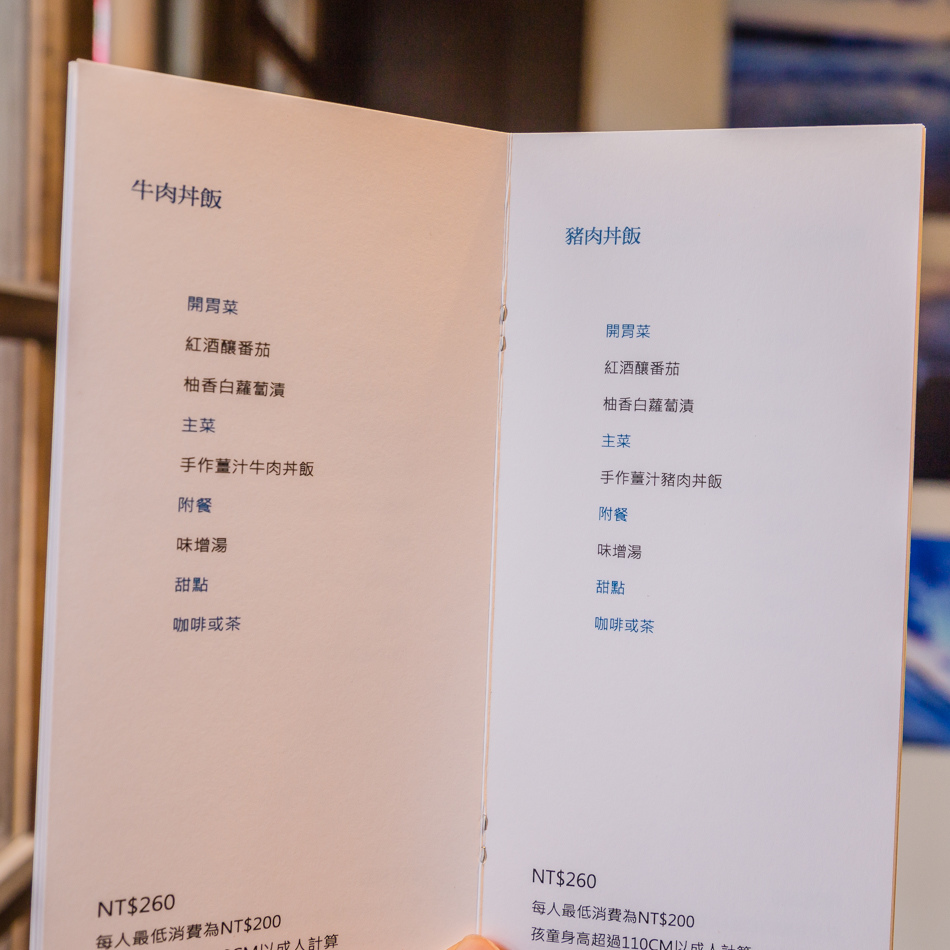 牛肉丼飯
開胃菜
紅酒釀番茄
柚香白蘿蔔漬
主菜
手作薑汁牛肉丼飯
附餐
味增湯
甜點
咖啡或茶
NT$260
每人最低消費為NT$200
0CM以成人計算
豬肉丼飯
開胃菜
紅酒釀番茄
柚香白蘿蔔漬
主菜
手作薑汁豬肉丼飯
附餐
味增湯
甜點
咖啡或茶
NT$260
每人最低消費為NT$200
孩童身高超過110CM以成人計算